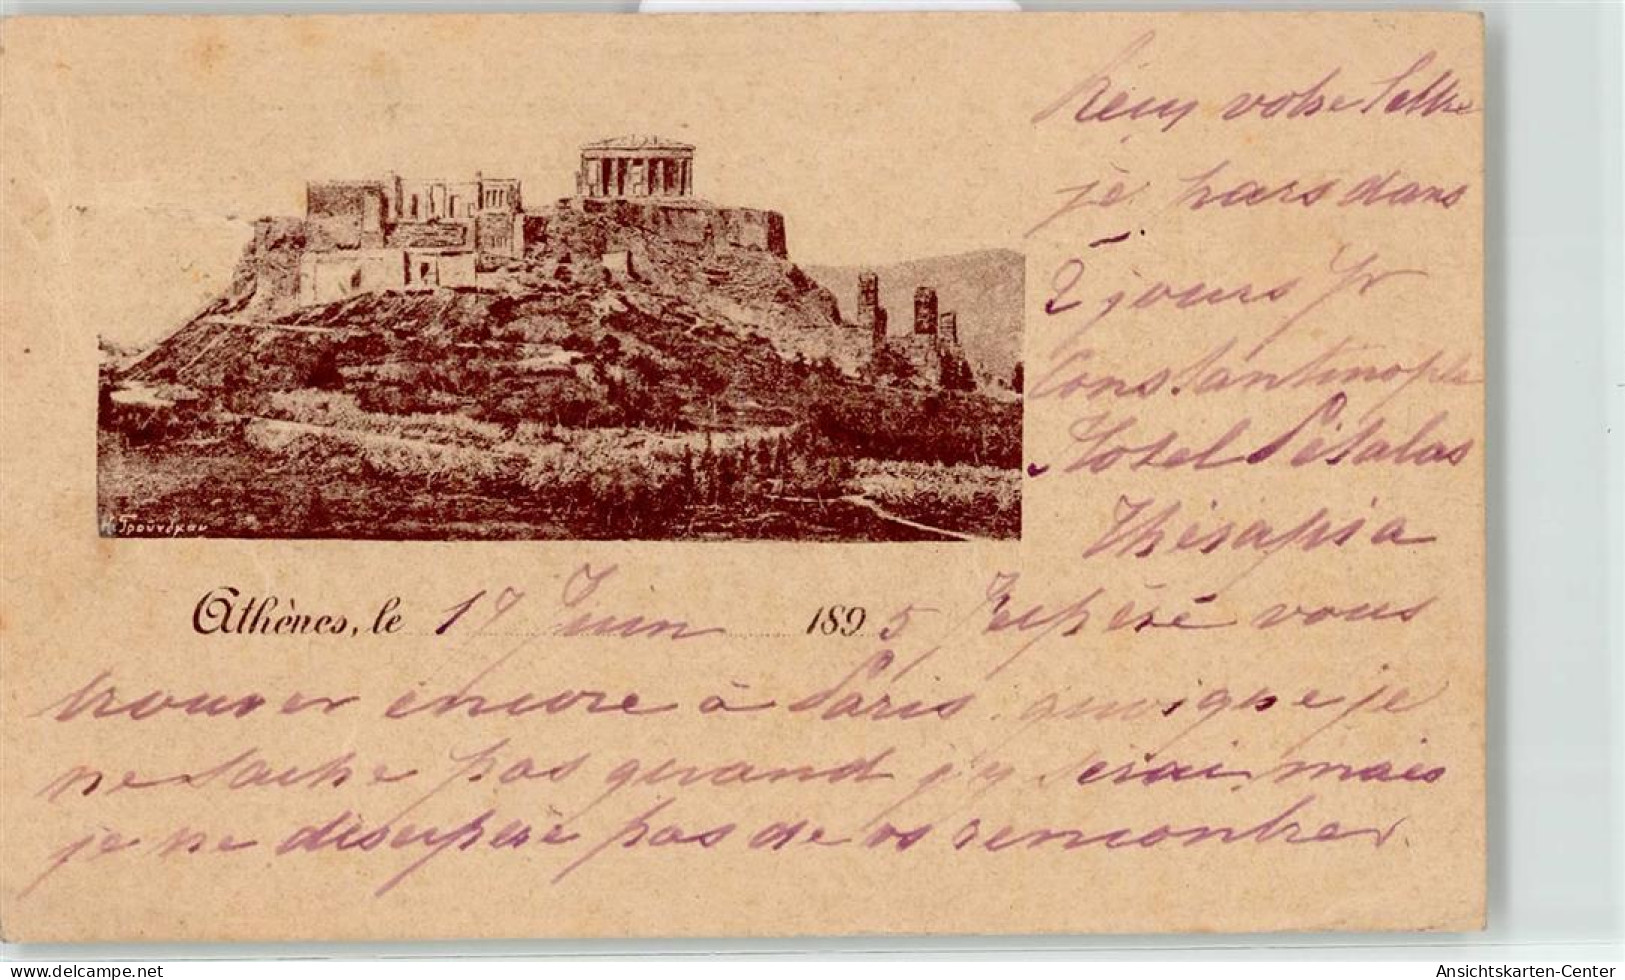 Reçu votre lettre
je pars dans
2 jours pr
Constantinople
Hotel Pétalas
Thérapia
Γρούνδμαν
Athènes, le 17 Juin 1895 J'espère vous
trouver encore à Paris, quoique je
ne sache pas quand j'y serai, mais
je ne désespère pas de vs rencontrer
Ansichtskarten-Center